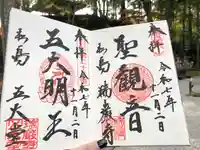 奉拝
聖観音
令和七年
十一月二日
松島 瑞巌寺
奉拝
五大明王
令和七年
十一月二日
松島
五大堂